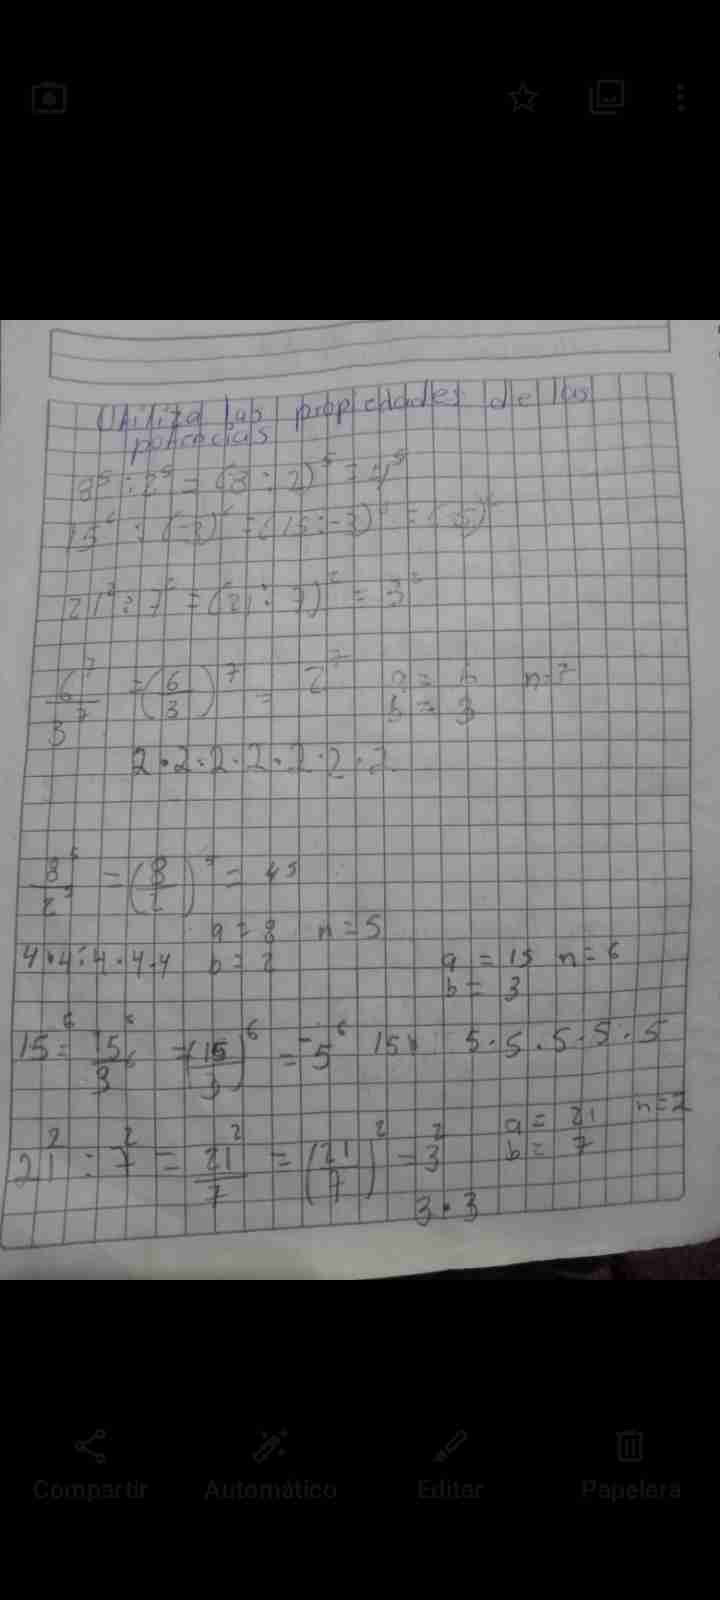 Utiliza las propiedades de las
potencias
8⁵ : 2⁵ = (8 : 2)⁵ = 4⁵
15⁶ : (-3)⁶ = (15 : -3)⁶ = (-5)⁶
21² : 7² = (21 : 7)² = 3²
6⁷/3⁷ = (6/3)⁷ = 2⁷ a = 6 n=7
b = 3
2·2·2·2·2·2·2
8⁵/2⁵ = (8/2)⁵ = 4⁵
a = 8 n = 5
4·4·4·4·4 b = 2 a = 15 n = 6
b = 3
15⁶= 15⁶/3⁶ = (15/3)⁶ = -5⁶ 15 5·5·5·5·5
21² : 7² = 21²/7 = (21/7)² = 3² a = 21 n=2
b = 7
3·3
Compartir Automático Editar Papelera